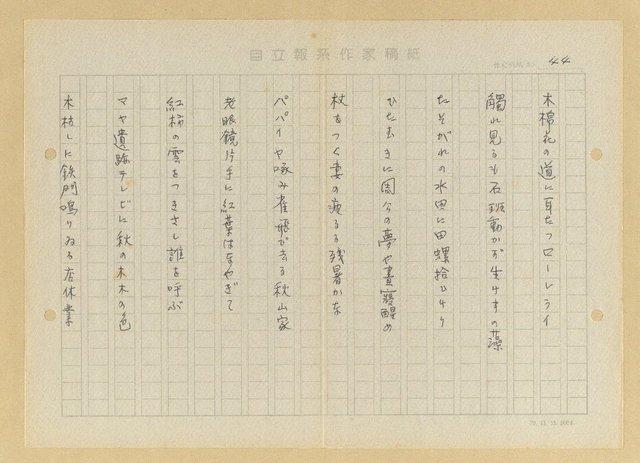 自立報系作家稿紙
44
木棉花の道に耳たつローレライ
觸れ見るも石斑動かず生けすの藻
たそがれの水田に田螺拾ひけり
ひたむきに国分の夢や晝寢醒め
杖をつく妻の痩るる残暑かな
パパイヤ啄み雀飛び去る秋山家
老眼鏡片手に紅葉はなやぎて
紅柿の雲をつきさし誰を呼ぶ
マヤ遺跡テレビに秋の木木の色
木枯しに鉄門鳴りゐる店休業